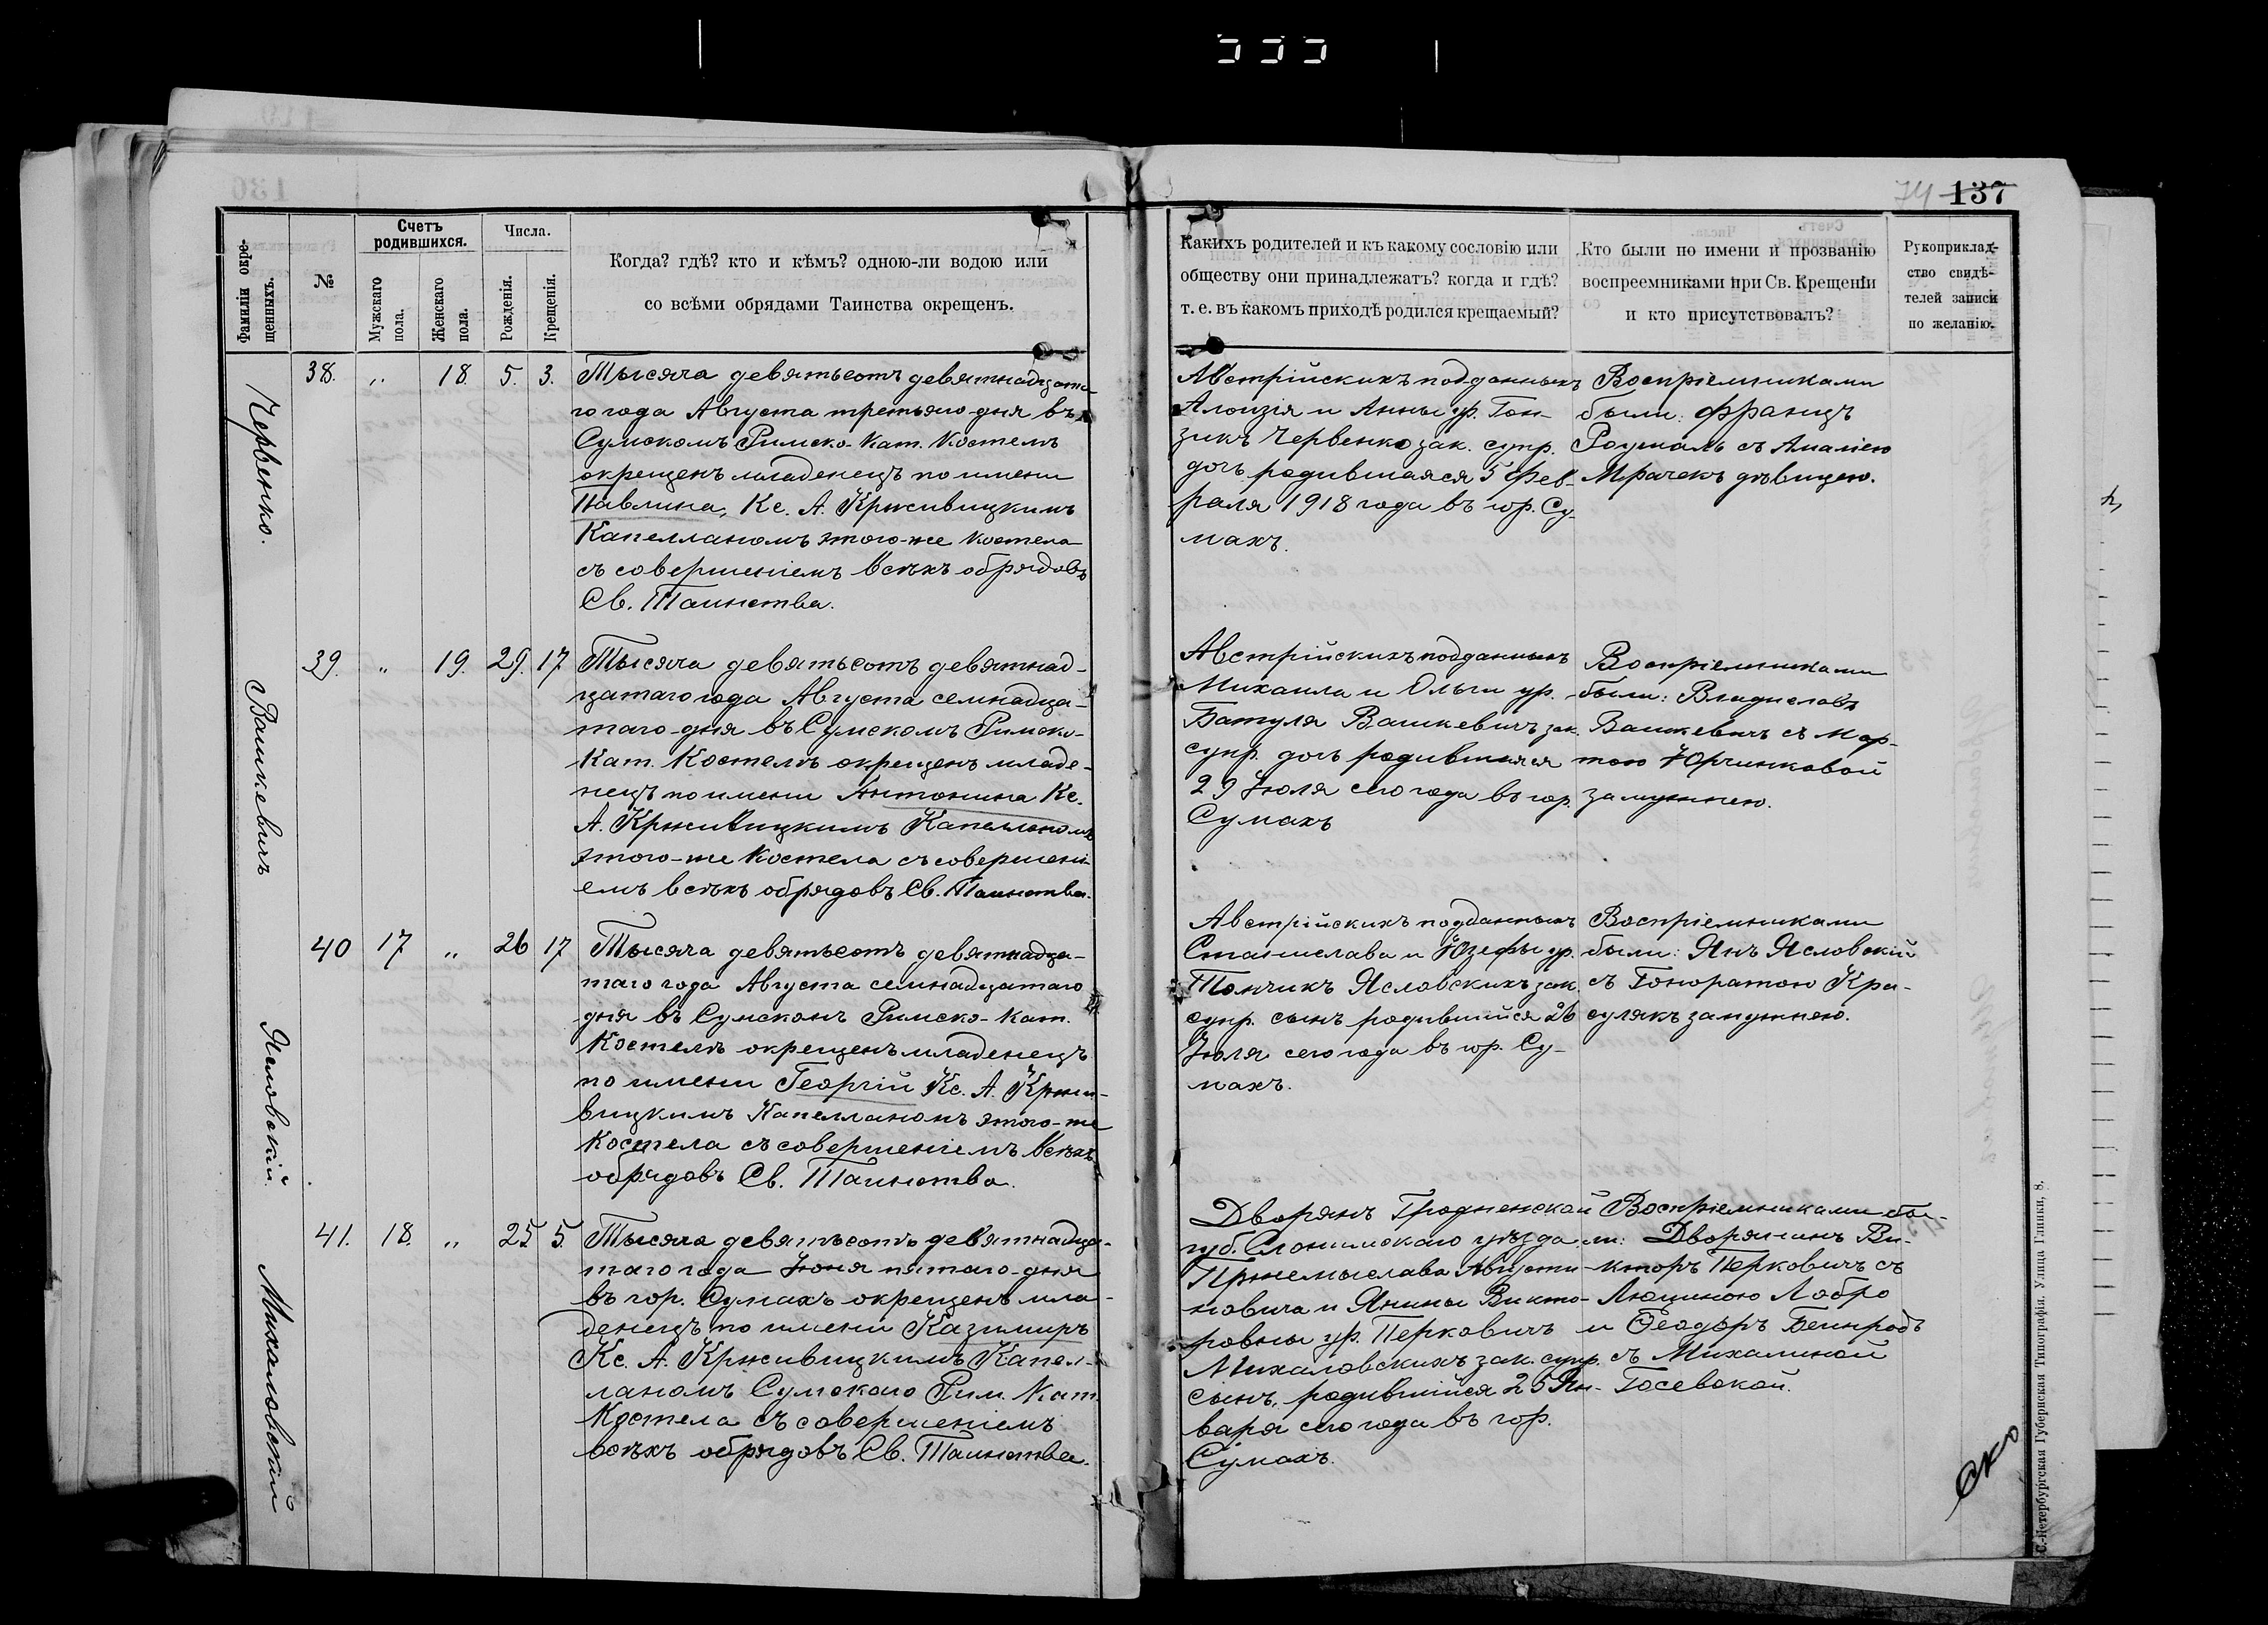 137
74
Фамиліи окре-
щенныхъ.
№
Счетъ
родившихся.
Мужскаго
пола.
Женскаго
пола.
Числа.
Рожденія.
Крещенія.
Когда? гдѣ? кто и кѣмъ? одною-ли водою или
со всѣми обрядами Таинства окрещенъ.
Какихъ родителей и къ какому сословію или
обществу они принадлежатъ? когда и гдѣ?
т. е. въ какомъ приходѣ родился крещаемый?
Кто были по имени и прозванію
воспреемниками при Св. Крещеніи
и кто присутствовалъ?
Рукоприклад-
ство свидѣ-
телей записи
по желанію.
Червенко.
38. „ 18. 5. 3.
Тысяча девятьсотъ девятнадцата-
го года Августа третьяго дня въ
Сумскомъ Римско-Кат. Костелѣ
окрещенъ младенецъ по имени
Павлина, Кс. А. Крживицкимъ
Капелланомъ этого-же Костела
съ совершеніемъ всѣхъ обрядовъ
Св. Таинства.
Австрійскихъ подданныхъ
Алоизія и Анны ур. Гон-
зикъ Червенко зак. супр.
дочь родившаяся 5 Фев-
раля 1918 года въ гор. Су-
махъ.
Воспріемниками
были: Францъ
Роуналь съ Амаліею
Мрачекъ дѣвицею.
Вашкевичъ
39. „ 19. 29. 17
Тысяча девятьсотъ девятнад-
цатаго года Августа семнадца-
таго дня въ Сумскомъ Римско-
Кат. Костелѣ окрещенъ младе-
нецъ по имени Антонина Кс.
А. Крживицкимъ Капелланомъ
этого-же Костела съ совершені-
емъ всѣхъ обрядовъ Св. Таинства.
Австрійскихъ подданныхъ
Михаила и Ольги ур.
Батуля Вашкевичъ зак.
супр. дочь родившаяся
29 Іюля сего года въ гор.
Сумахъ
Воспріемниками
были: Владиславъ
Вашкевичъ съ Мар-
тою Юрчинковой
замужнею.
Ясловскій.
40 17 „ 26 17
Тысяча девятьсотъ девятнадца-
таго года Августа семнадцатаго
дня въ Сумскомъ Римско-Кат.
Костелѣ окрещенъ младенецъ
по имени Георгій Кс. А. Кржи-
вицкимъ Капелланомъ этого-же
Костела съ совершеніемъ всѣхъ
обрядовъ Св. Таинства.
Австрійскихъ подданныхъ
Станислава и Юзефы ур.
Тончикъ Ясловскихъ зак.
супр. сынъ родившійся 26
Іюля сего года въ гор. Су-
махъ.
Воспріемниками
были: Янъ Ясловскій
съ Гоноратою Кра-
сулякъ замужнею.
Михаловскій
41. 18. „ 25. 5.
Тысяча девятьсотъ девятнадца-
таго года Іюня пятаго дня
въ гор. Сумахъ окрещенъ мла-
денецъ по имени Казимиръ
Кс. А. Крживицкимъ Капел-
ланомъ Сумскаго Рим. Кат.
Костела съ совершеніемъ
всѣхъ обрядовъ Св. Таинства.
Дворянъ Гродненской
губ. Слонимскаго уѣзда
Пржемыслава Августи-
новича и Янины Викто-
ровны ур. Перковичъ
Михаловскихъ зак. супр.
сынъ, родившійся 25 Ян-
варя сего года въ гор.
Сумахъ.
Воспріемниками бы-
ли: Дворянинъ Ви-
кторъ Перковичъ съ
Люциною Лобро
и Ѳеодоръ Бенродъ
съ Михалиной
Госевской.
С.-Петербургская Губернская Типографія. Улица Глинки, 8.